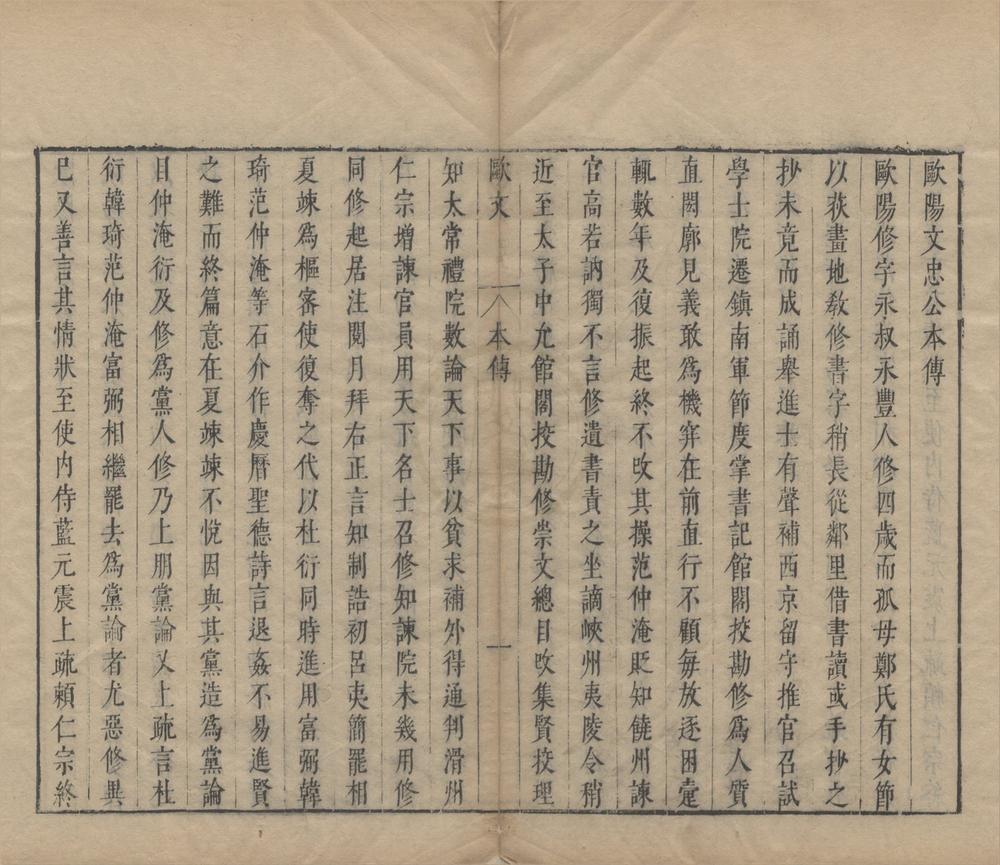 歐陽文忠公本傳
歐陽修字永叔永豐人修四歲而孤母鄭氏有女節
以荻畫地敎修書字稍長從鄰里借書讀或手抄之
抄未竟而成誦舉進士有聲補西京留守推官召試
學士院遷鎮南軍節度掌書記館閣挍勘修爲人質
直閎廓見義敢爲機穽在前直行不顧每放逐困躓
輒數年及復振起終不攺其操范仲淹貶知饒州諫
官高若訥獨不言修遺書責之坐謫峽州夷陵令稍
近至太子中允館閣挍勘修崇文總目攺集賢挍理
歐文 本傳 一
知太常禮院數論天下事以貧求補外得通判滑州
仁宗增諫官員用天下名士召修知諫院未幾用修
同修起居注閱月拜右正言知制誥初呂夷簡罷相
夏竦爲樞密使復奪之代以杜衍同時進用富弼韓
琦范仲淹等石介作慶曆聖德詩言退姦不易進賢
之難而終篇意在夏竦竦不悅因與其黨造爲黨論
目仲淹衍及修爲黨人修乃上朋黨論又上疏言杜
衍韓琦范仲淹富弼相繼罷去爲黨論者尤惡修異
巳又善言其情狀至使內侍藍元震上疏賴仁宗終